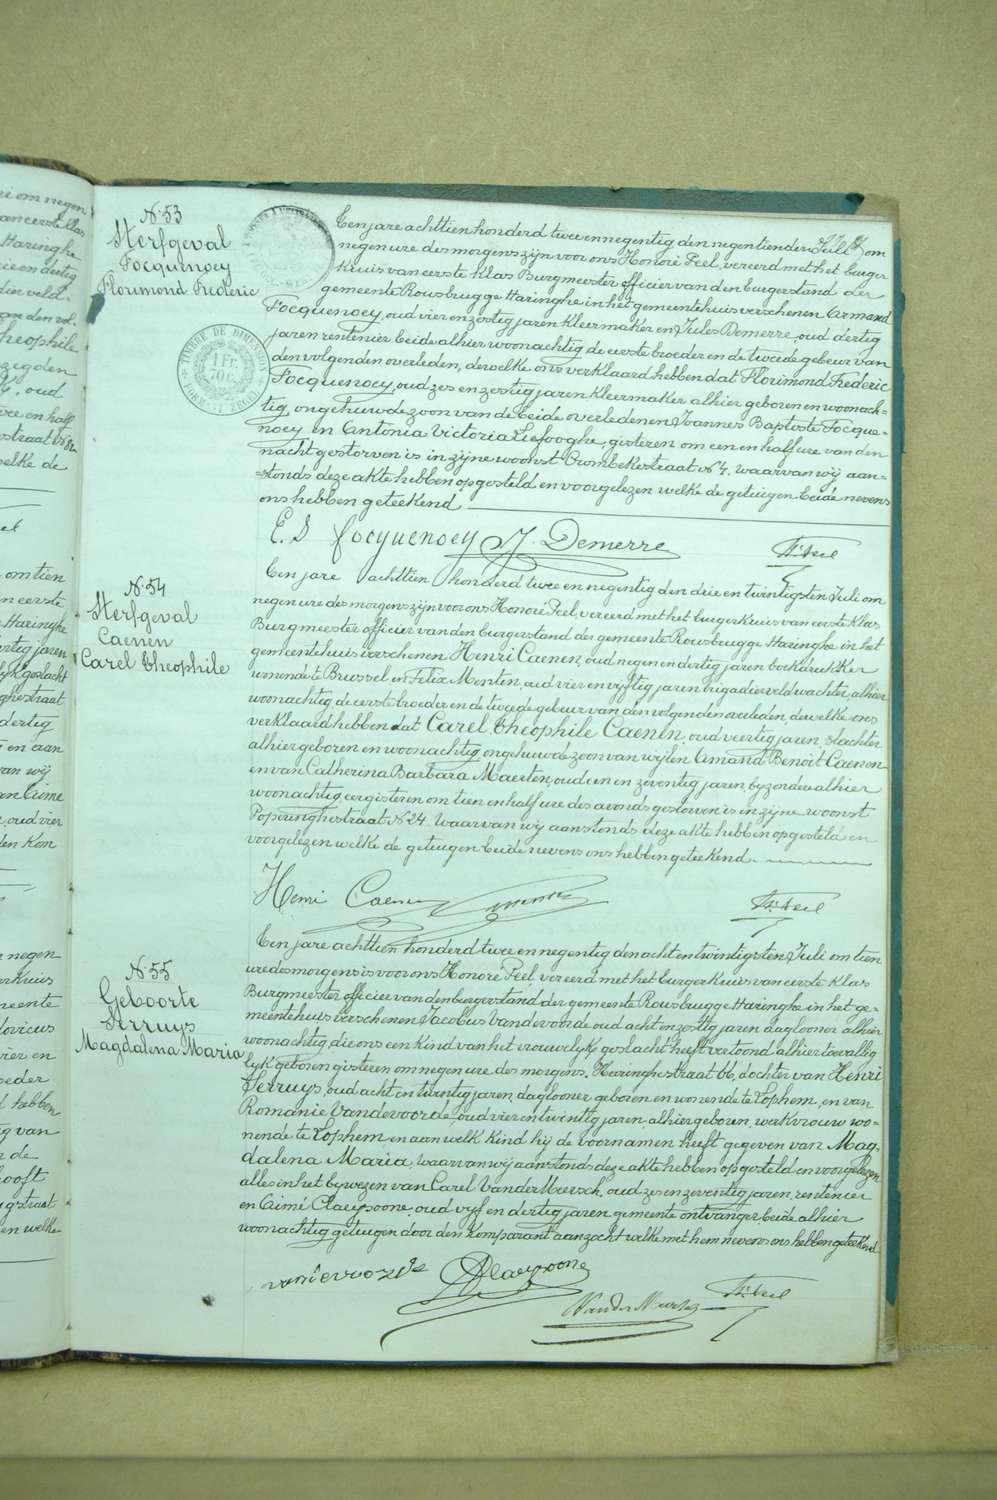 N. 53
Sterfgeval
Focquenoey
Florimond Frederic
TIMBRE DE DIMENSION
1 Fr.
70 c.
Een jare achttien honderd twee en negentig den negentienden Juli om
negen ure des morgens zijn voor ons Honoré Peel, vereerd met het burger-
kruis van eerste klas Burgmeester officier van den burgerstand der
gemeente Rousbrugge Haringhe in het gemeentehuis verschenen Armand
Focquenoey, oud vier en zestig jaren kleermaker en Jules Demerre, oud dertig
jaren rentenier beide alhier woonachtig de eerste broeder en de tweede gebeur van
den volgenden overleden, dewelke ons verklaard hebben dat Florimond Frederic
Focquenoey, oud zes en zestig jaren kleermaker alhier geboren en woonach-
tig, ongehuwde zoon van de beide overledenen Joannes Baptiste Focque-
noey en Antonia Victoria Liefooghe, gisteren om een en half ure van den
nacht gestorven is in zijne woonst Crombekestraat No 4. waarvan wij aan-
stonds deze akte hebben opgesteld en voorgelezen welke de getuigen beide nevens
ons hebben geteekend
E. S Focquenoey J. Demerre Hé Peel
N. 54
Sterfgeval
Caenen
Carel Theophile
Een jare achttien honderd twee en negentig den drie en twintigsten Juli om
negen ure des morgens zijn voor ons Honoré Peel, vereerd met het burgerkruis van eerste klas
Burgmeester officier van den burgerstand der gemeente Rousbrugge Haringhe in het
gemeentehuis verschenen Henri Caenen, oud negen en dertig jaren boekdrukker
wonende te Brussel en Felix Menten, oud vier en vijftig jaren brigadier veldwachter, alhier
woonachtig, de eerste broeder en de tweede gebeur van den volgenden overleden, dewelke ons
verklaard hebben dat Carel Theophile Caenen oud veertig jaren, slachter
alhier geboren en woonachtig ongehuwde zoon van wijlen Amand Benoit Caenen
en van Catherina Barbara Maerten, oud een en zeventig jaren, byzondere alhier
woonachtig, eergisteren om tien en half ure des avonds gestorven is in zijne woonst
Poperinghestraat No 24. waarvan wij aanstonds deze akte hebben opgesteld en
voorgelezen welke de getuigen beide nevens ons hebben geteekend.
Henri Caenen Hé Peel
N. 55
Geboorte
Serruys
Magdalena Maria
Een jare achttien honderd twee en negentig den acht en twintigsten Juli om tien
ure des morgens is voor ons Honoré Peel, vereerd met het burgerkruis van eerste klas
Burgmeester officier van den burgerstand der gemeente Rousbrugge Haringhe in het ge-
meentehuis verschenen Jacobus Vandevoorde oud acht en zestig jaren daglooner alhier
woonachtig, die ons een kind van het vrouwelijk geslacht heeft vertoond alhier toevallig
lijk geboren gisteren om negen ure des morgens. Haringhestraat 66, dochter van Henri
Serruys, oud acht en twintig jaren, daglooner geboren en wonende te Lophem, en van
Romanie Vandevoorde, oud vier en twintig jaren alhier geboren, werkvrouw wo-
nende te Lophem en aan welk kind hij de voornamen heeft gegeven van Mag-
dalena Maria, waarvan wij aanstonds deze akte hebben opgesteld en voorgelezen
alles in het bywezen van Carel Vander Meersch, oud zes en zeventig jaren, rentenier
en Aimé Claeysoone, oud vijf en dertig jaren gemeente ontvanger beide alhier
woonachtig getuigen door den komparant aanzocht welke met hem nevens ons hebben geteekend
A Claeysoone
Van der Meersch Hé Peel